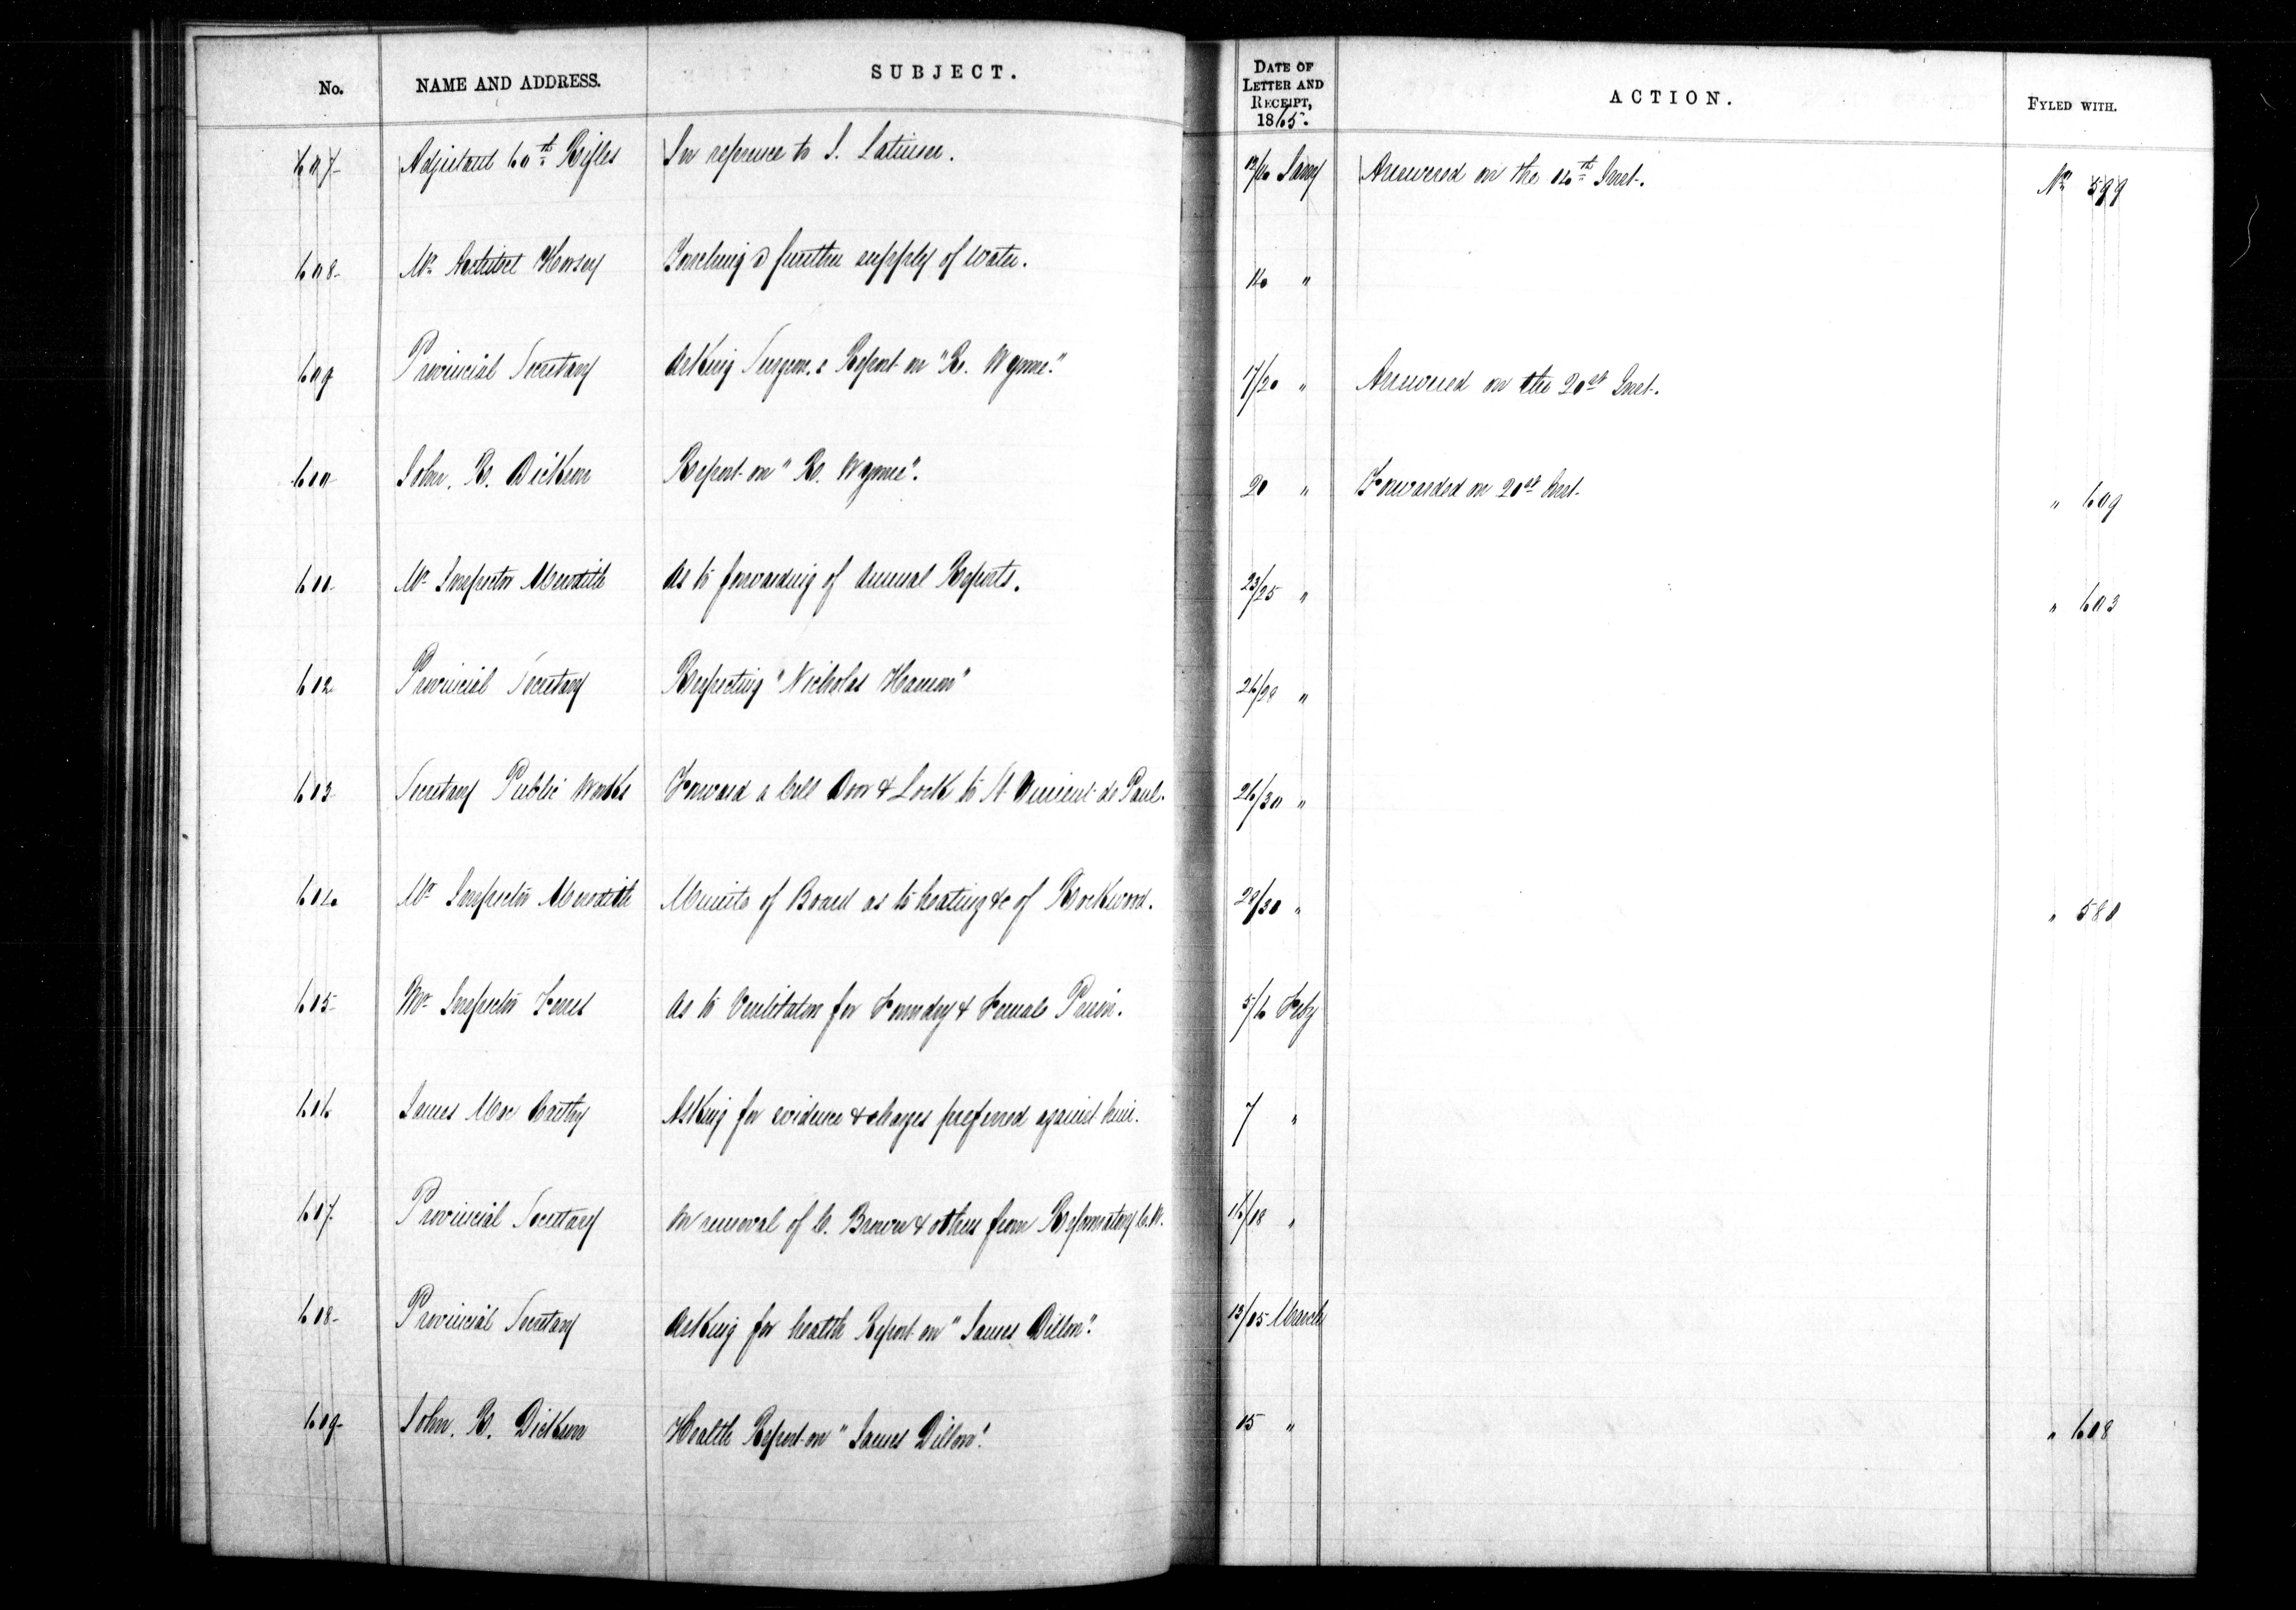 No. NAME AND ADDRESS. SUBJECT. DATE OF LETTER AND RECEIPT, 1865. ACTION. FYLED WITH.
607 Adjutant 60th Rifles In reference to J. Latimer. 12/14 Jany Answered on the 14th Inst. No 599
608 Mr Horsey further supply of water. 14 "
609 Provincial Secretary Asking Surgeon's Report on "R. Wynne." 17/20 " Answered on the 20st Inst.
610 John. R. Dickson Report on "R. Wynne". 20 " Forwarded on 20st Inst. " 609
611 Mr Inspector Meredith As to forwarding of Annual Reports. 23/25 " " 603
612 Provincial Secretary Respecting "Nicholas Hanson" 26/28 "
613 Secretary Public Works Forward a Cell Door & Lock to St Vincent de Paul. 26/30 "
614 Mr Inspector Meredith Minute of Board as to heating &c of Rockwood. 28/30 " " 580
615 Mr Inspector As to Ventilators for Foundry & Female Prison. 5/6 Feby
616 James Mac Carthy Asking for evidence & charges preferred against him. 7 "
617 Provincial Secretary On removal of C. Brown & others from Reformatory C.W. 16/18 "
618 Provincial Secretary Asking for health Report on "James Dillon". 13/15 March
619 John. R. Dickson Health Report on "James Dillon". 15 " " 618